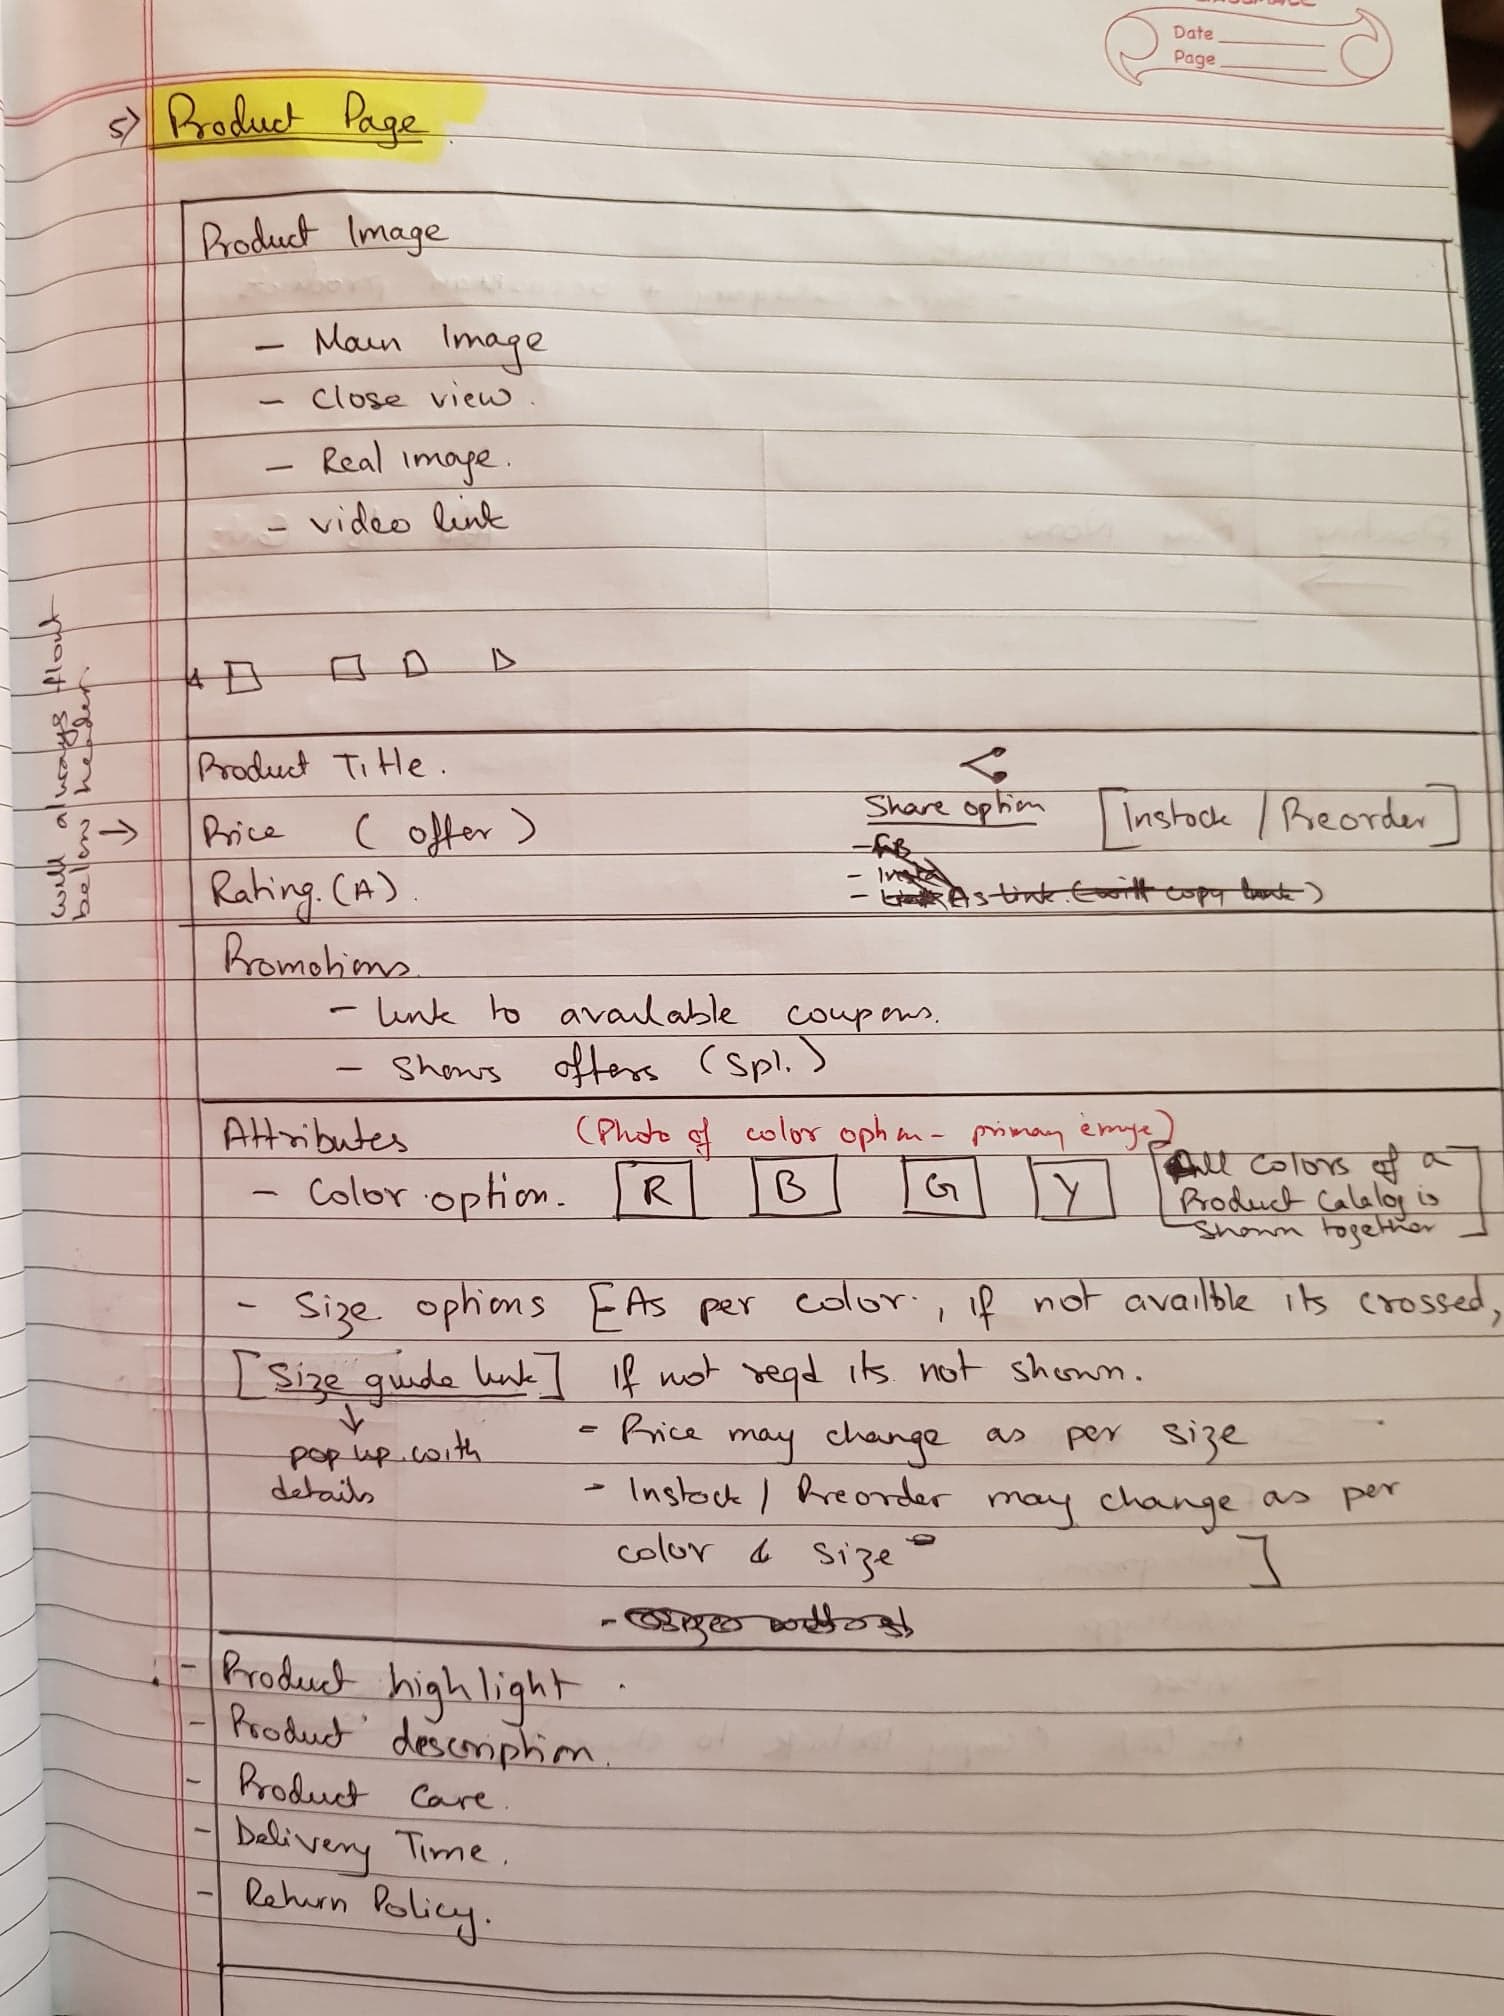 Date
Page
5) Product Page
Product Image
- Main Image
- Close view.
- Real image.
- video link
will always float
below header.
Product Title.
Price ( offer )
Share option
[Instock / Preorder]
Rating. (A).
- FB
- Insta
- As link. (will copy link)
Promotions.
- link to available coupons.
- Shows offers (Spl.)
Attributes (Photo of color option - primary image)
- Color option. R B G Y
[All colors of a
Product Catalog is
Shown together]
- Size options [As per color., if not availble its crossed,
[Size guide link] If not reqd its not shown.
pop up with
details
- Price may change as per size
- Instock / Preorder may change as per
color & size ]
- Product highlight.
- Product description.
- Product Care.
- Delivery Time.
- Return Policy.